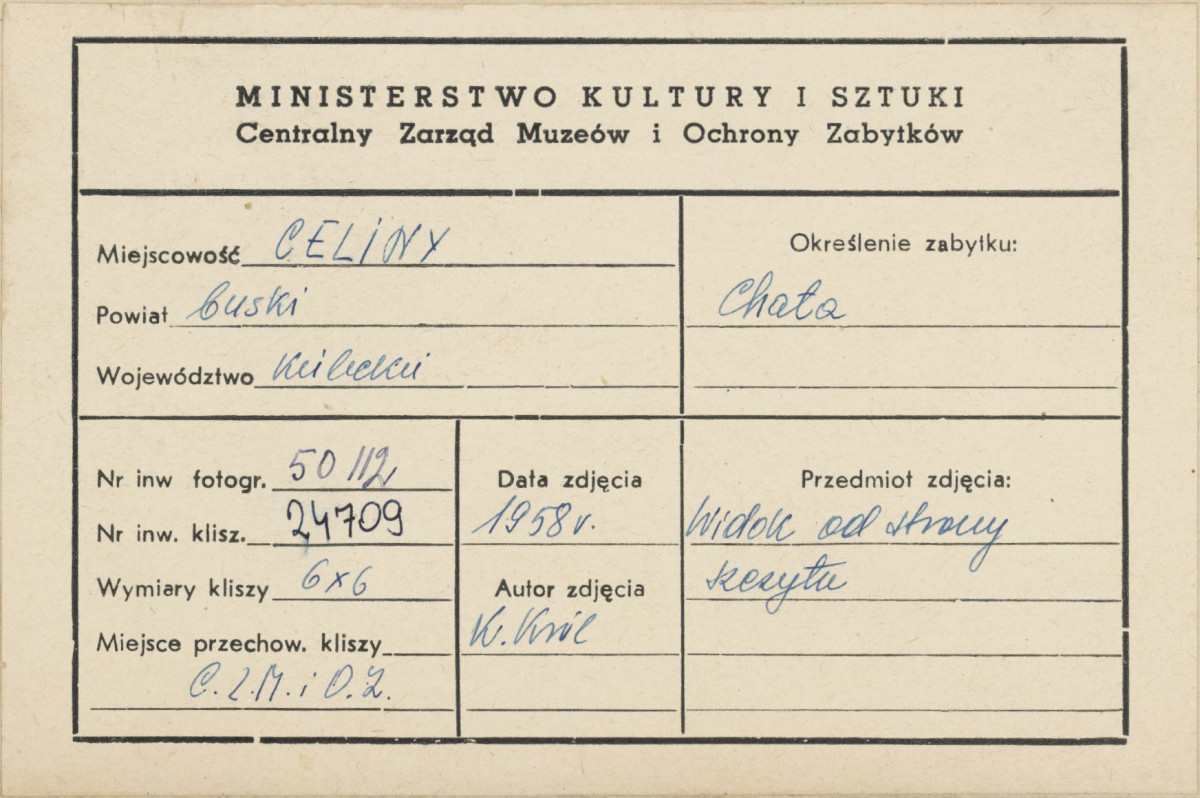 MINISTERSTWO KULTURY I SZTUKI
Centralny Zarząd Muzeów i Ochrony Zabytków
Miejscowość CELINY
Powiat buski
Województwo kielecki
Określenie zabytku:
Chata
Nr inw fotogr. 50112
Nr inw. klisz. 24709
Wymiary kliszy 6x6
Miejsce przechow. kliszy
C.Z.M. i O.Z.
Data zdjęcia
1958 r.
Autor zdjęcia
K. Król
Przedmiot zdjęcia:
Widok od strony
szczytu